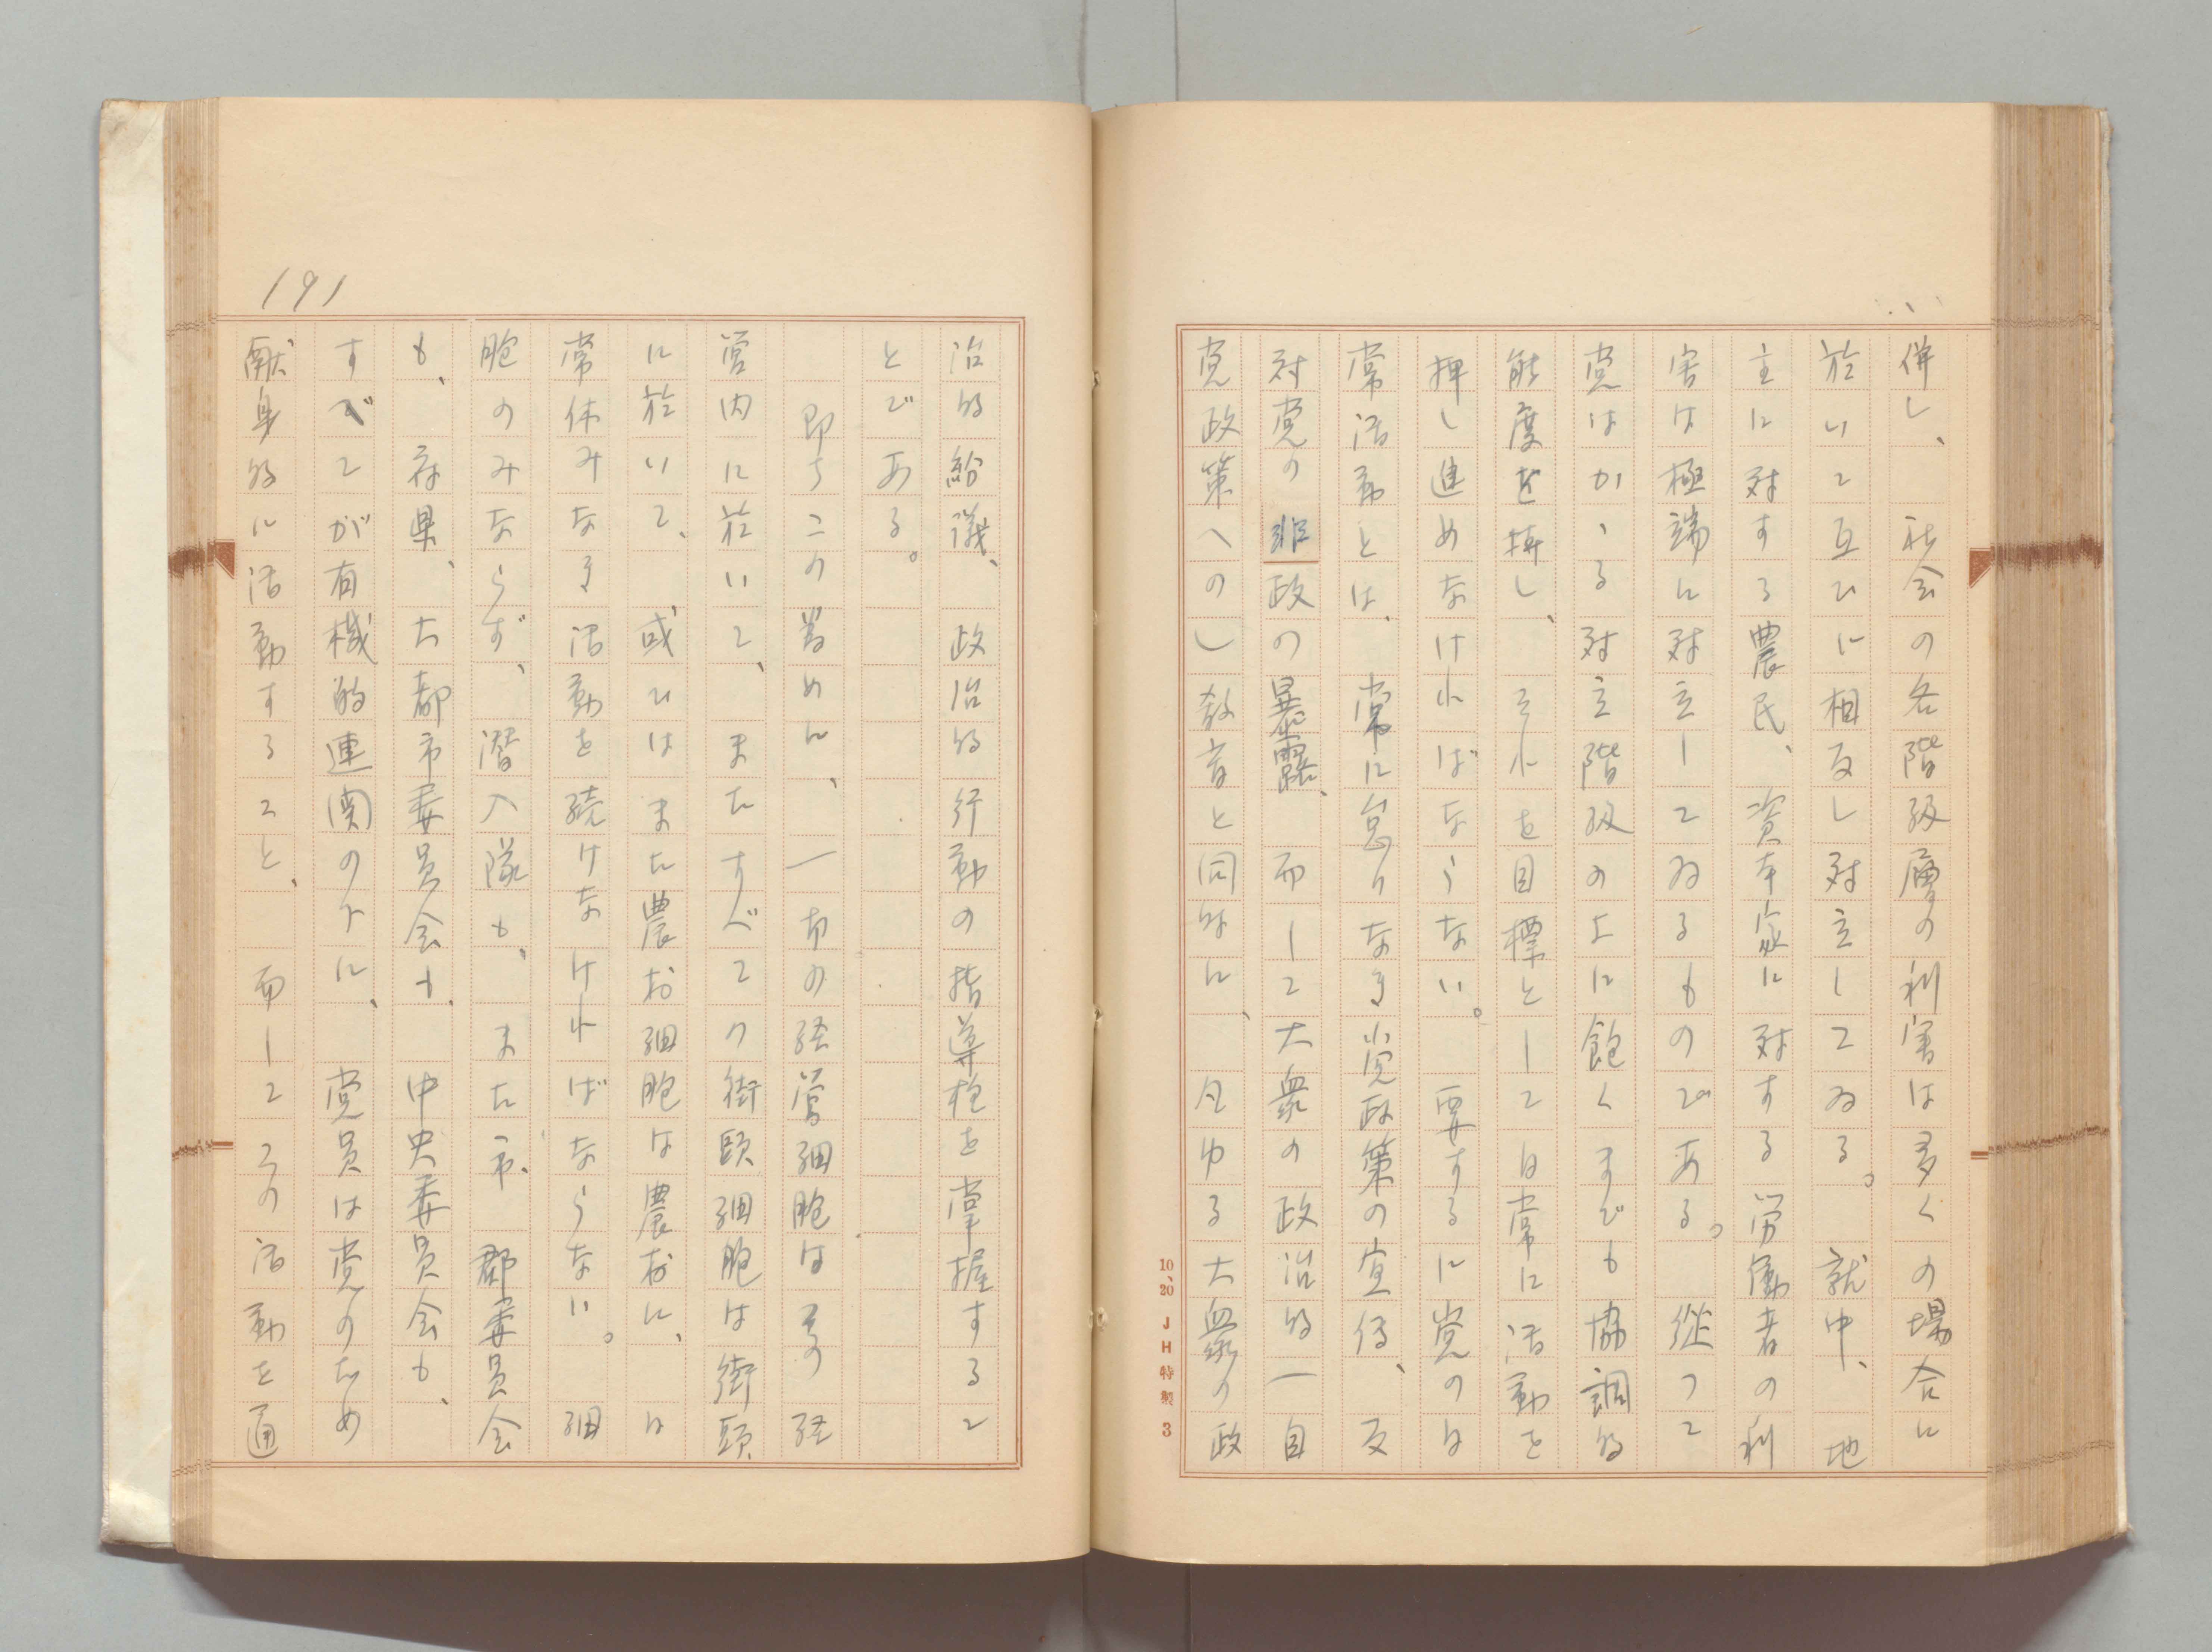 併し、社会の各階級層の利害は多くの場合に
於いて互ひに相反し対立してゐる。就中、地
主に対する農民、資本家に対する労働者の利
害は極端に対立してゐるものである。従つて
党はかゝる対立階級の上に飽くまでも協調的
態度を持し、それを目標として日常に活動を
押し進めなければならない。要するに党の日
常活動とは、常に怠りなき党政策の宣伝、反
対党の非政の暴露、而して大衆の政治的一自
党政策へのし教育と同時に、凡ゆる大衆の政
10、20 JH特製 3
治的紛議、政治的行動の指導権を掌握するこ
とである。
即ちこの為めに、一切の経営細胞はその経
営内に於いて、またすべての街頭細胞は街頭
に於いて、或ひはまた農村細胞は農村に、日
常休みなき活動を続けなければならない。細
胞のみならず、潜入隊も、また市、郡委員会
も、府県、大都市委員会も、中央委員会も、
すべてが有機的連関の下に、党員は党のため
献身的に活動すること、而してその活動を通
191